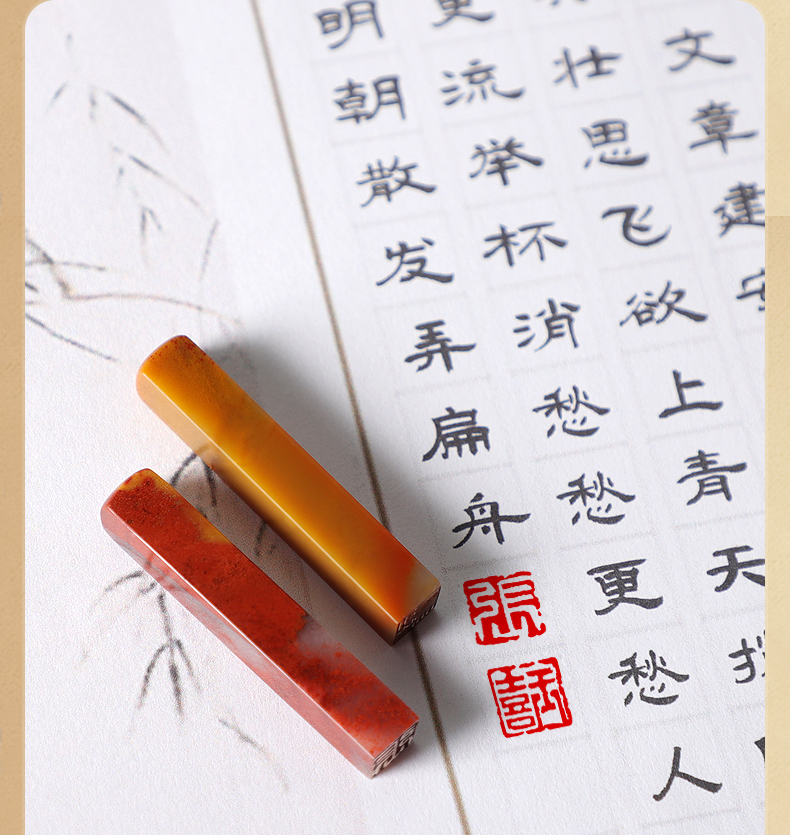 文章建安
壮思飞欲上青天
更流举杯消愁愁更愁人
明朝散发弄扁舟
張